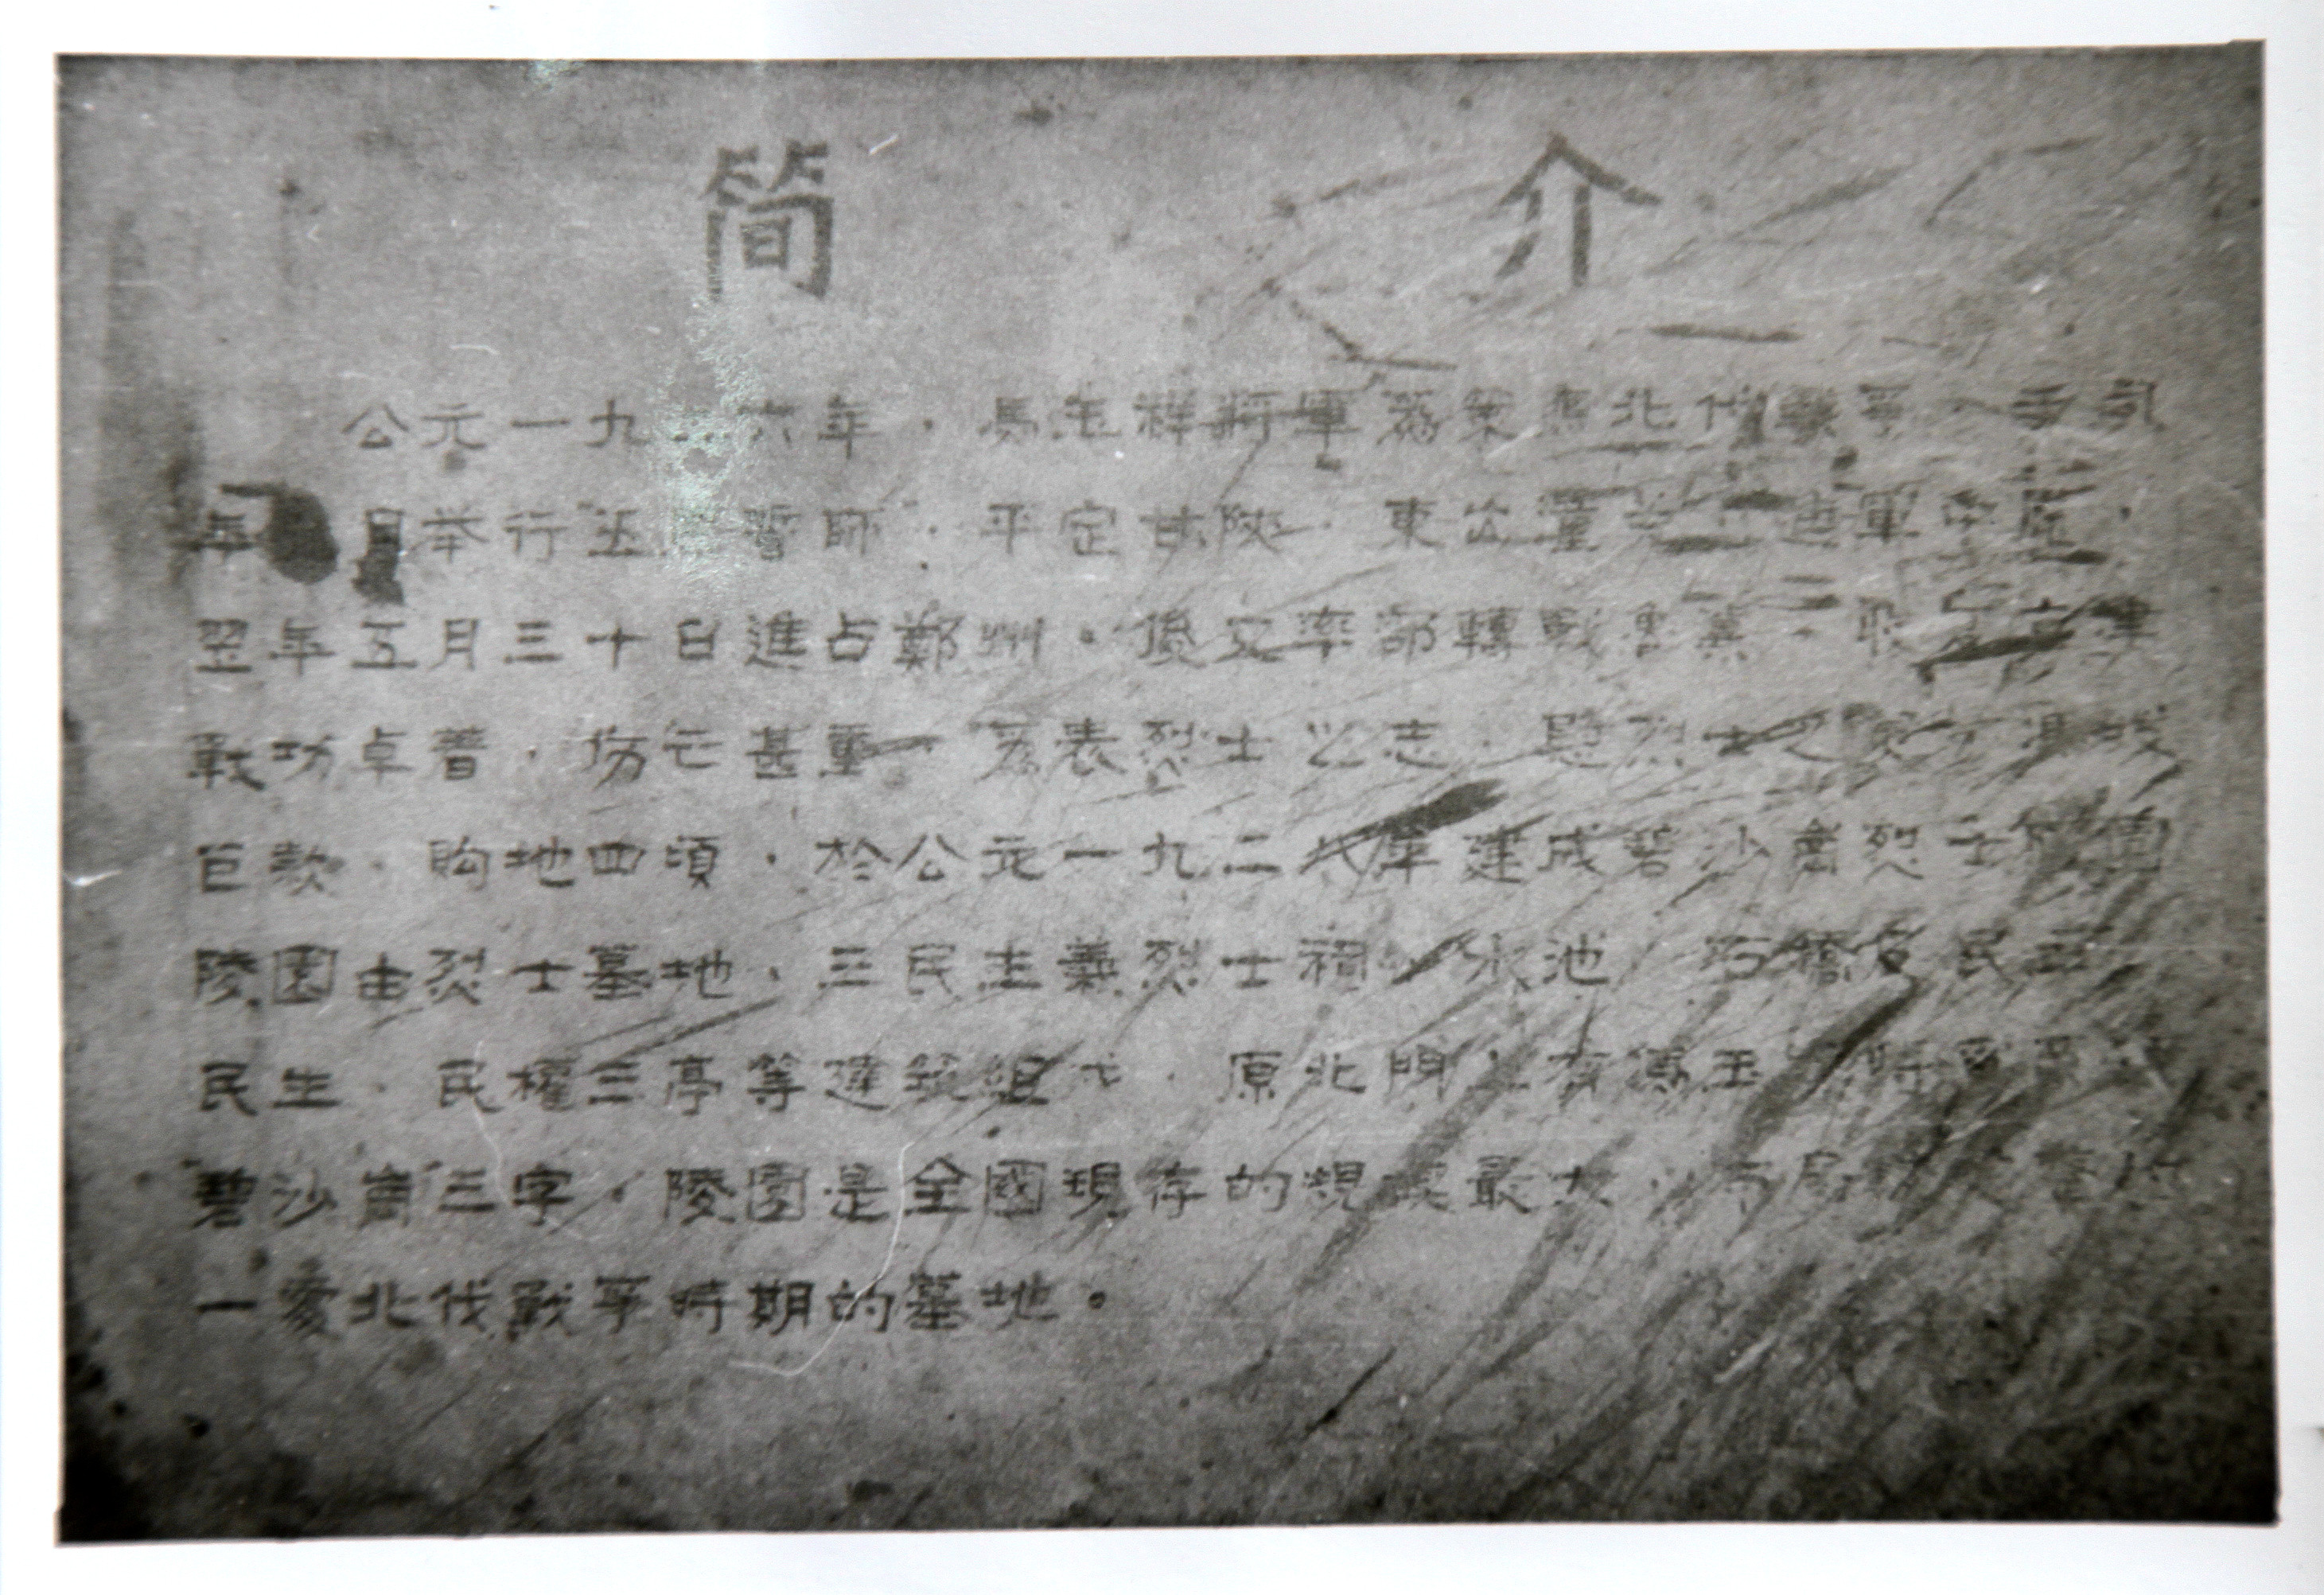 簡 介
公元一九二六年，馮玉祥將軍爲策應北伐戰爭，
年 月举行五原誓師，平定甘陝，東出潼关，進軍中原，
翌年五月三十日進占鄭州。後又率部轉戰魯冀，
戰功卓著，伤亡甚重，爲表烈士之志，慰烈士之
巨款，购地四頃，於公元一九二八年建成碧沙崗烈士陵園
陵園由烈士墓地，三民主義烈士祠，水池，石橋 民
民生，民權三亭等建筑组成。原北門上有馮玉祥
碧沙崗三字，陵園是全國現存的規模最大，
一處北伐戰爭時期的墓地。